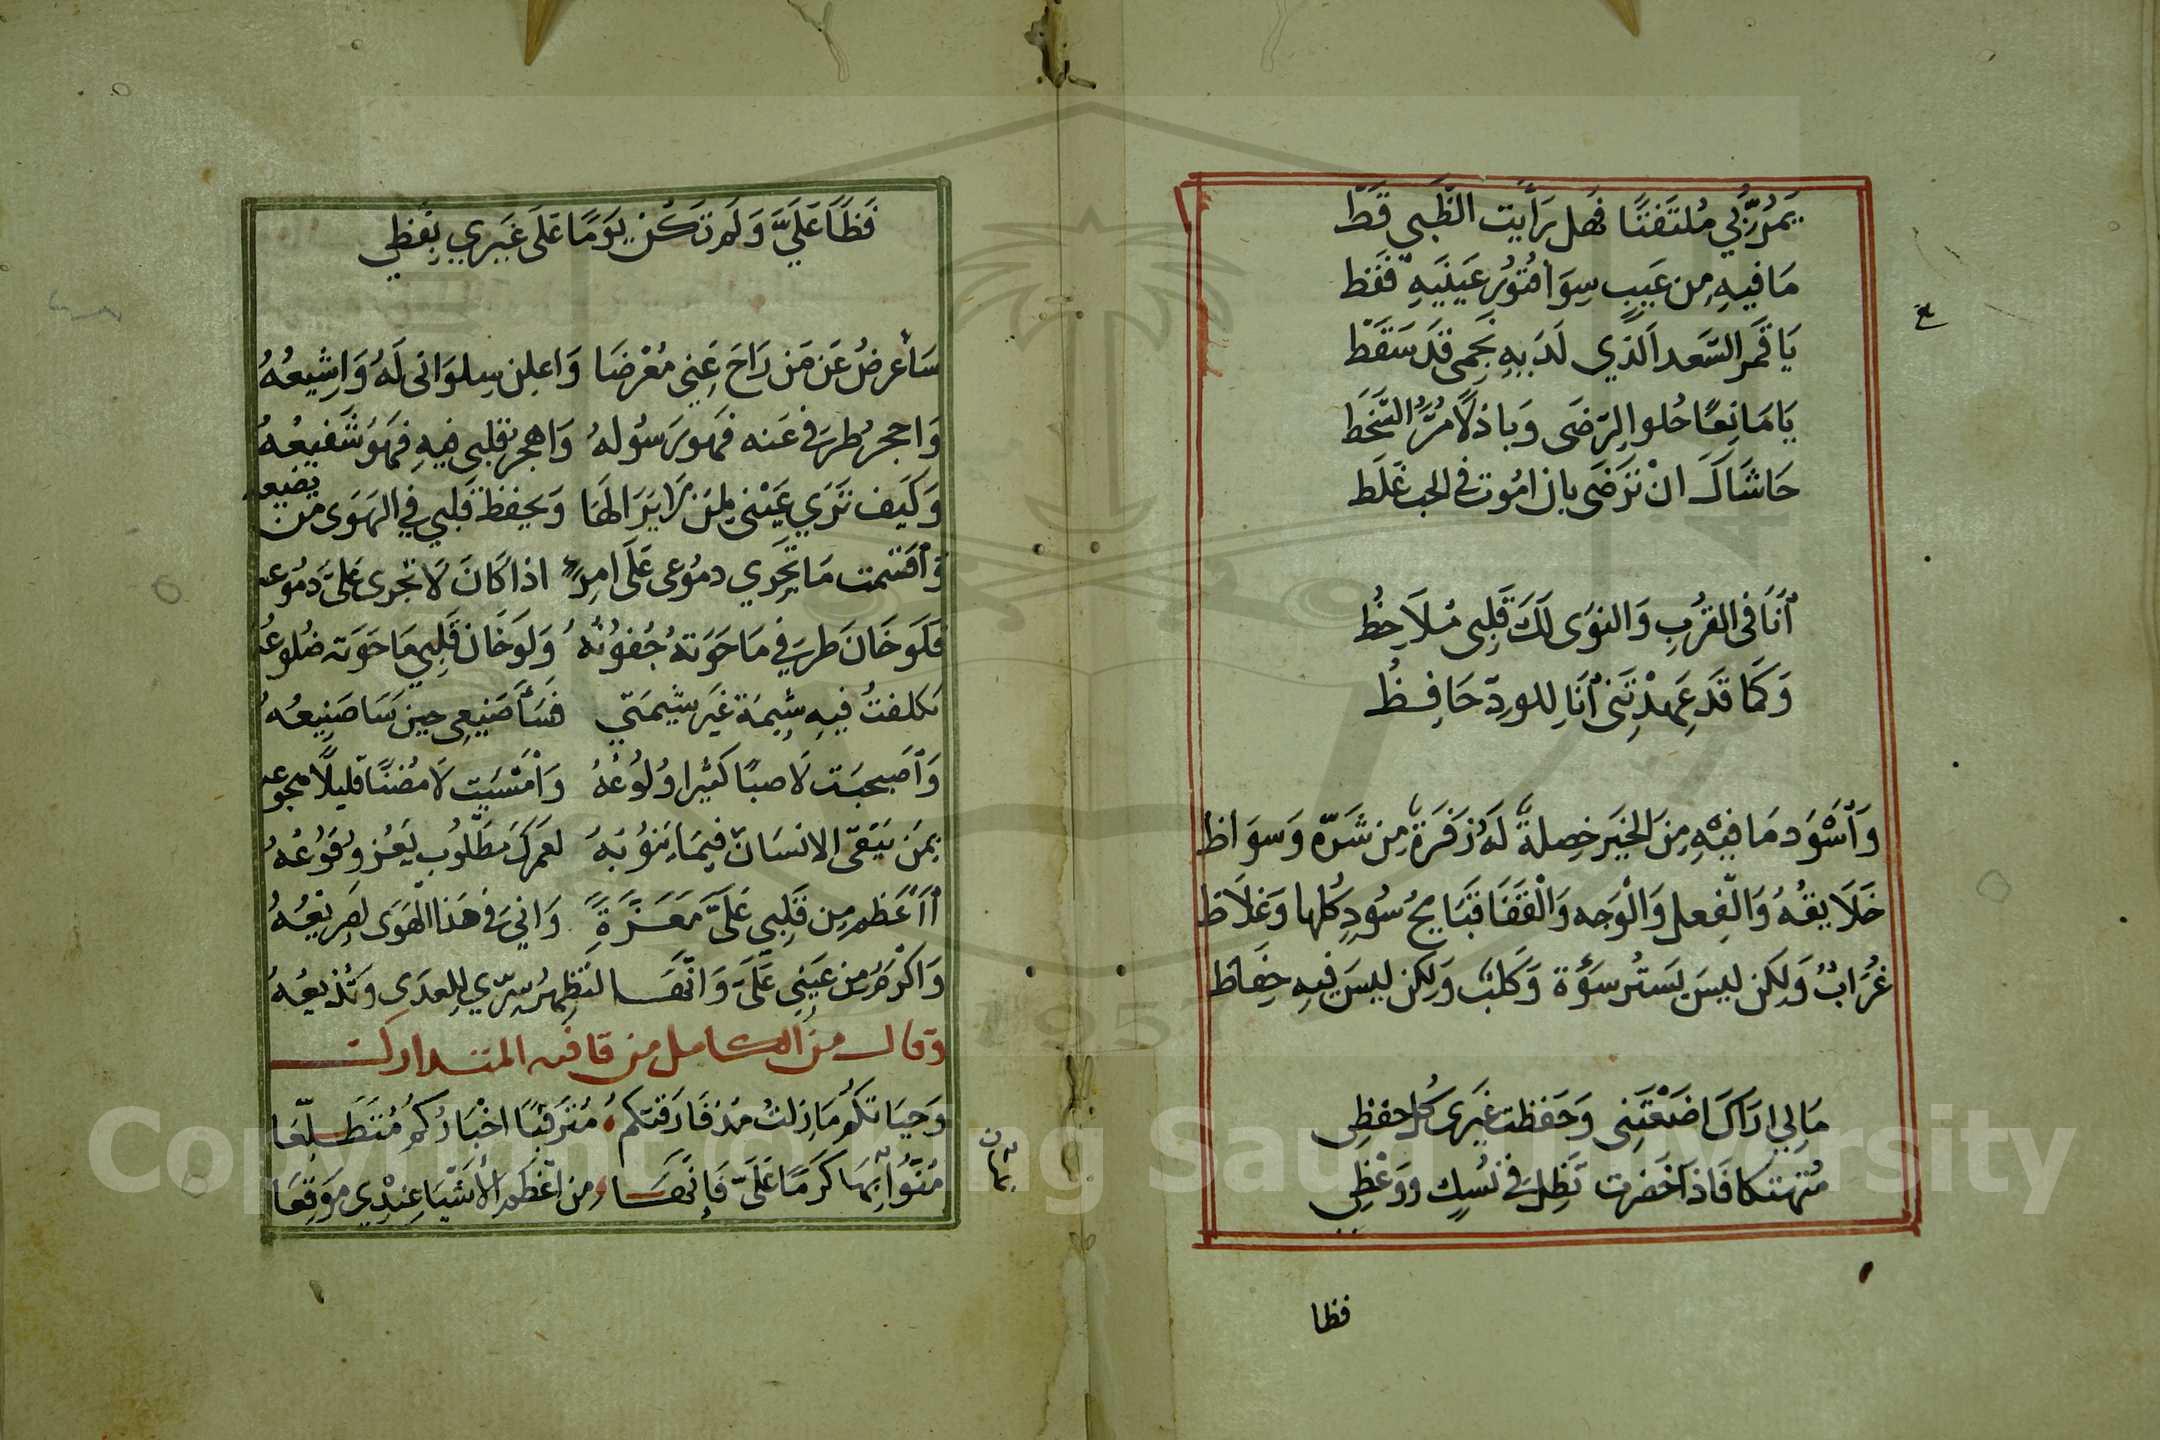 يَمُرُّ بِي مُلتَفتًا فهَل رَأيت الظَّبي قَطْ
مَا فيهِ مِن عَيبٍ سِوَا فُتُور عَينَيهِ فقَط
يَا قمَر السَّعد الَّذي لَدَيهِ نجَمِى قد سَقَطْ
يَا مَانِعًا حُلو الرِّضَى وَبَاذلًا مُرَّ السَّخَط
حَاشَاكَ انْ تَرضَى بان امُوت فى الحب غَلَط
أنَا فى القُربِ وَالنوَى لَكَ قَلبِى مُلَاحِظُ
وَكمَا قَد عَهِدْتَنى أنَا لِلودِّ حَافِظُ
وَأسْوَد مَا فيْهِ مِنَ الخيَر خِصلةٌ لَهُ زَفرَةٌ مِن شَرّه وَسوَاظ
خَلَايقُهُ وَالفِعل وَالْوَجه وَالْقفَا قبَايحُ سُودٍ كُلها وَغلَاظ
غُرَابٌ وَلكِن ليسَ يَستُر سَوْءة وَكلبٌ وَلكِن ليسَ فيهِ حِفَاظ
مَا لِي ارَاكَ اضَعْتَنِى وَحَفظت غَيرى كُل حِفظِى
مُتهتكا فَاذَا حَضرت تَظِل فى نُسكٍ وَوَعْظِى
فظا
فَظًا عَلَيَّ وَلَم تَكُنْ يَومًا عَلَى غَيرِي بِفَظِي
سَأعرضُ عَن مَن رَاحَ عَنِي مُعْرضَا وَاعلِن سِلوَانى لَهُ وَاشِيعُهُ
وَاحجرُ طَرفى عَنه فهَو رَسُولهُ وَاهجر قلبى فيهِ فهَوُ شَفيعُهُ
وَكيَف تَرَي عَيْنى لِمَن لا يَرَا لهَا وَيحفظ قَلبي فى الهَوَى من يضيعه
وَأقسَمت مَا تَجرِي دمُوعى عَلَى امرِءٍ اذا كَانَ لَا تجرى عَلىَّ دمُوعه
فَلَو خَانَ طَرفى مَا حَوَتهُ جُفونُهُ وَلَو خَان قَلبِى مَا حَوَته ضُلوعُه
تكلفتُ فيهِ شِيمَة غَير شيمَتي فسَأ صَنيعِى حينَ سَا صَنِيعُهُ
وَأصَبحَت لَا صبًا كثيرا وُلوُعُهُ وَأمْسَيت لَا مضنًا قليلًا هجوعه
بِمَن يَثقِ الانسَان فيمَا ينُوبَهُ لعَمرَكَ مَطلُوب يَعُز وُقوُعُهُ
أأعظم مِن قَلبِي عَلَىَّ مَعَزَّةً وَانيَ فى هَذا الهَوَى لصَرِيْعُهُ
وَاكْرَمُ من عَيني عَلَىَّ وَانهَا لتَظِهرُ سِرّي لِلعدَى وَتذيعُهُ
وقال من الكامل من قافيه المتدارك
وَحيَاتكُم مَا زِلتُ مُذ فَارَقتكمُ مُترَقبًا اخْبَارَكُم مُتَطَلِّعَا
مُنّوا بِهَا كَرَمًا عَلَىَّ فَإنهَا من اعْظَم الْأشَيَا عِنْدِي مَوقِعَا